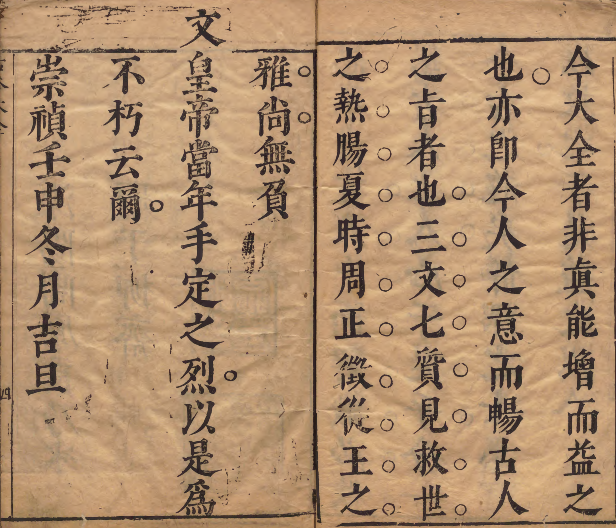 今大全者非真能增而益之
也亦即今人之意而暢古人
之旨者也三文七質見救世
之熱腸夏時周正徵從王之
雅尚無負
文皇帝當年手定之烈以是為
不朽云爾
崇禎壬申冬月吉旦
四